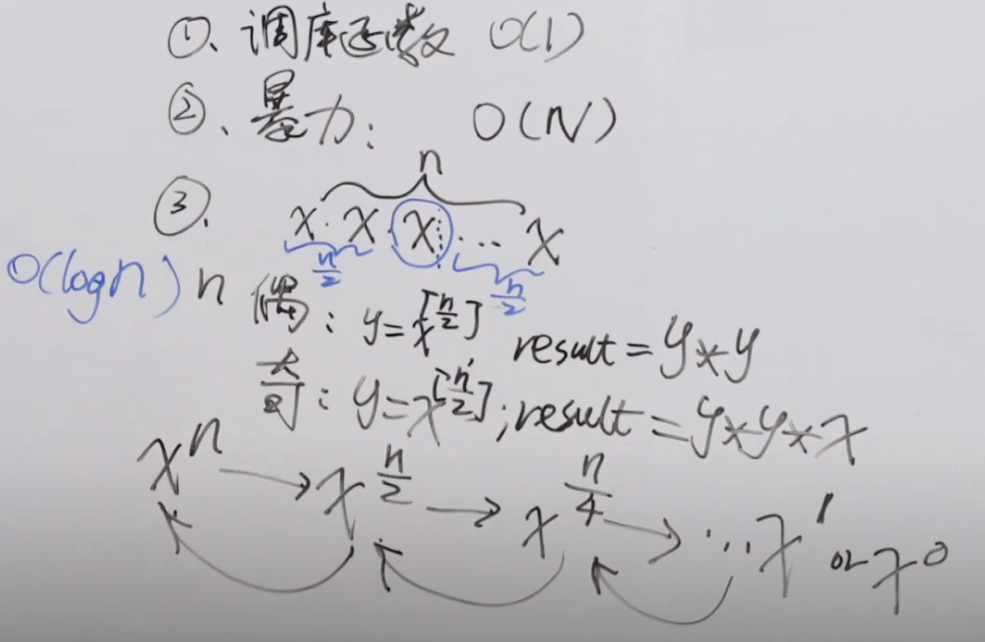 ①、调库函数 O(1)
②、暴力: O(N)
n
③. x · x · x · ... x
n/2 n/2
O(logn)
n 偶: y=x^[n/2] result=y*y
奇: y=x^[n/2]; result=y*y*x
x^n → x^(n/2) → x^(n/4) → ...x^1 or x^0